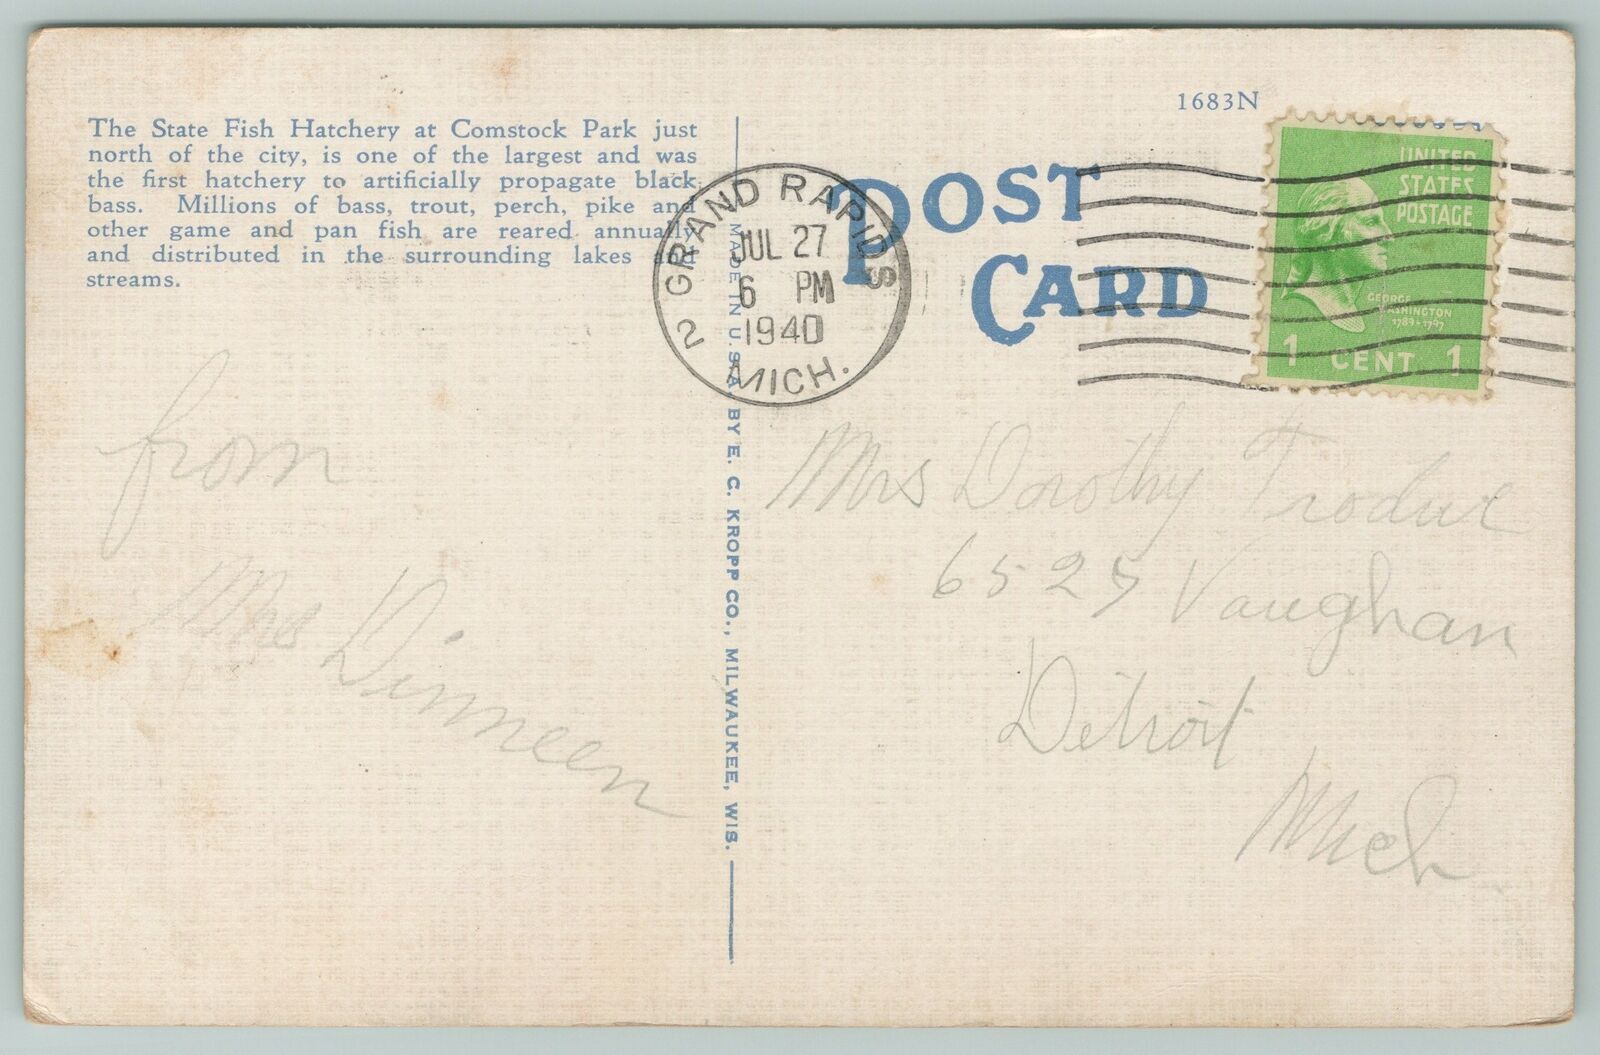 The State Fish Hatchery at Comstock Park just
north of the city, is one of the largest and was
the first hatchery to artificially propagate black
bass. Millions of bass, trout, perch, pike and
other game and pan fish are reared annually
and distributed in the surrounding lakes and
streams.
from
Mrs Dinneen
MADE IN U.S.A. BY E. C. KROPP CO., MILWAUKEE, WIS.
GRAND RAPIDS
JUL 27
6 PM
1940
2
MICH.
1683N
POST
CARD
UNITED
STATES
POSTAGE
GEORGE
WASHINGTON
1789-1797
1 CENT 1
Mrs Dorothy
6525 Vaughan
Detroit
Mich